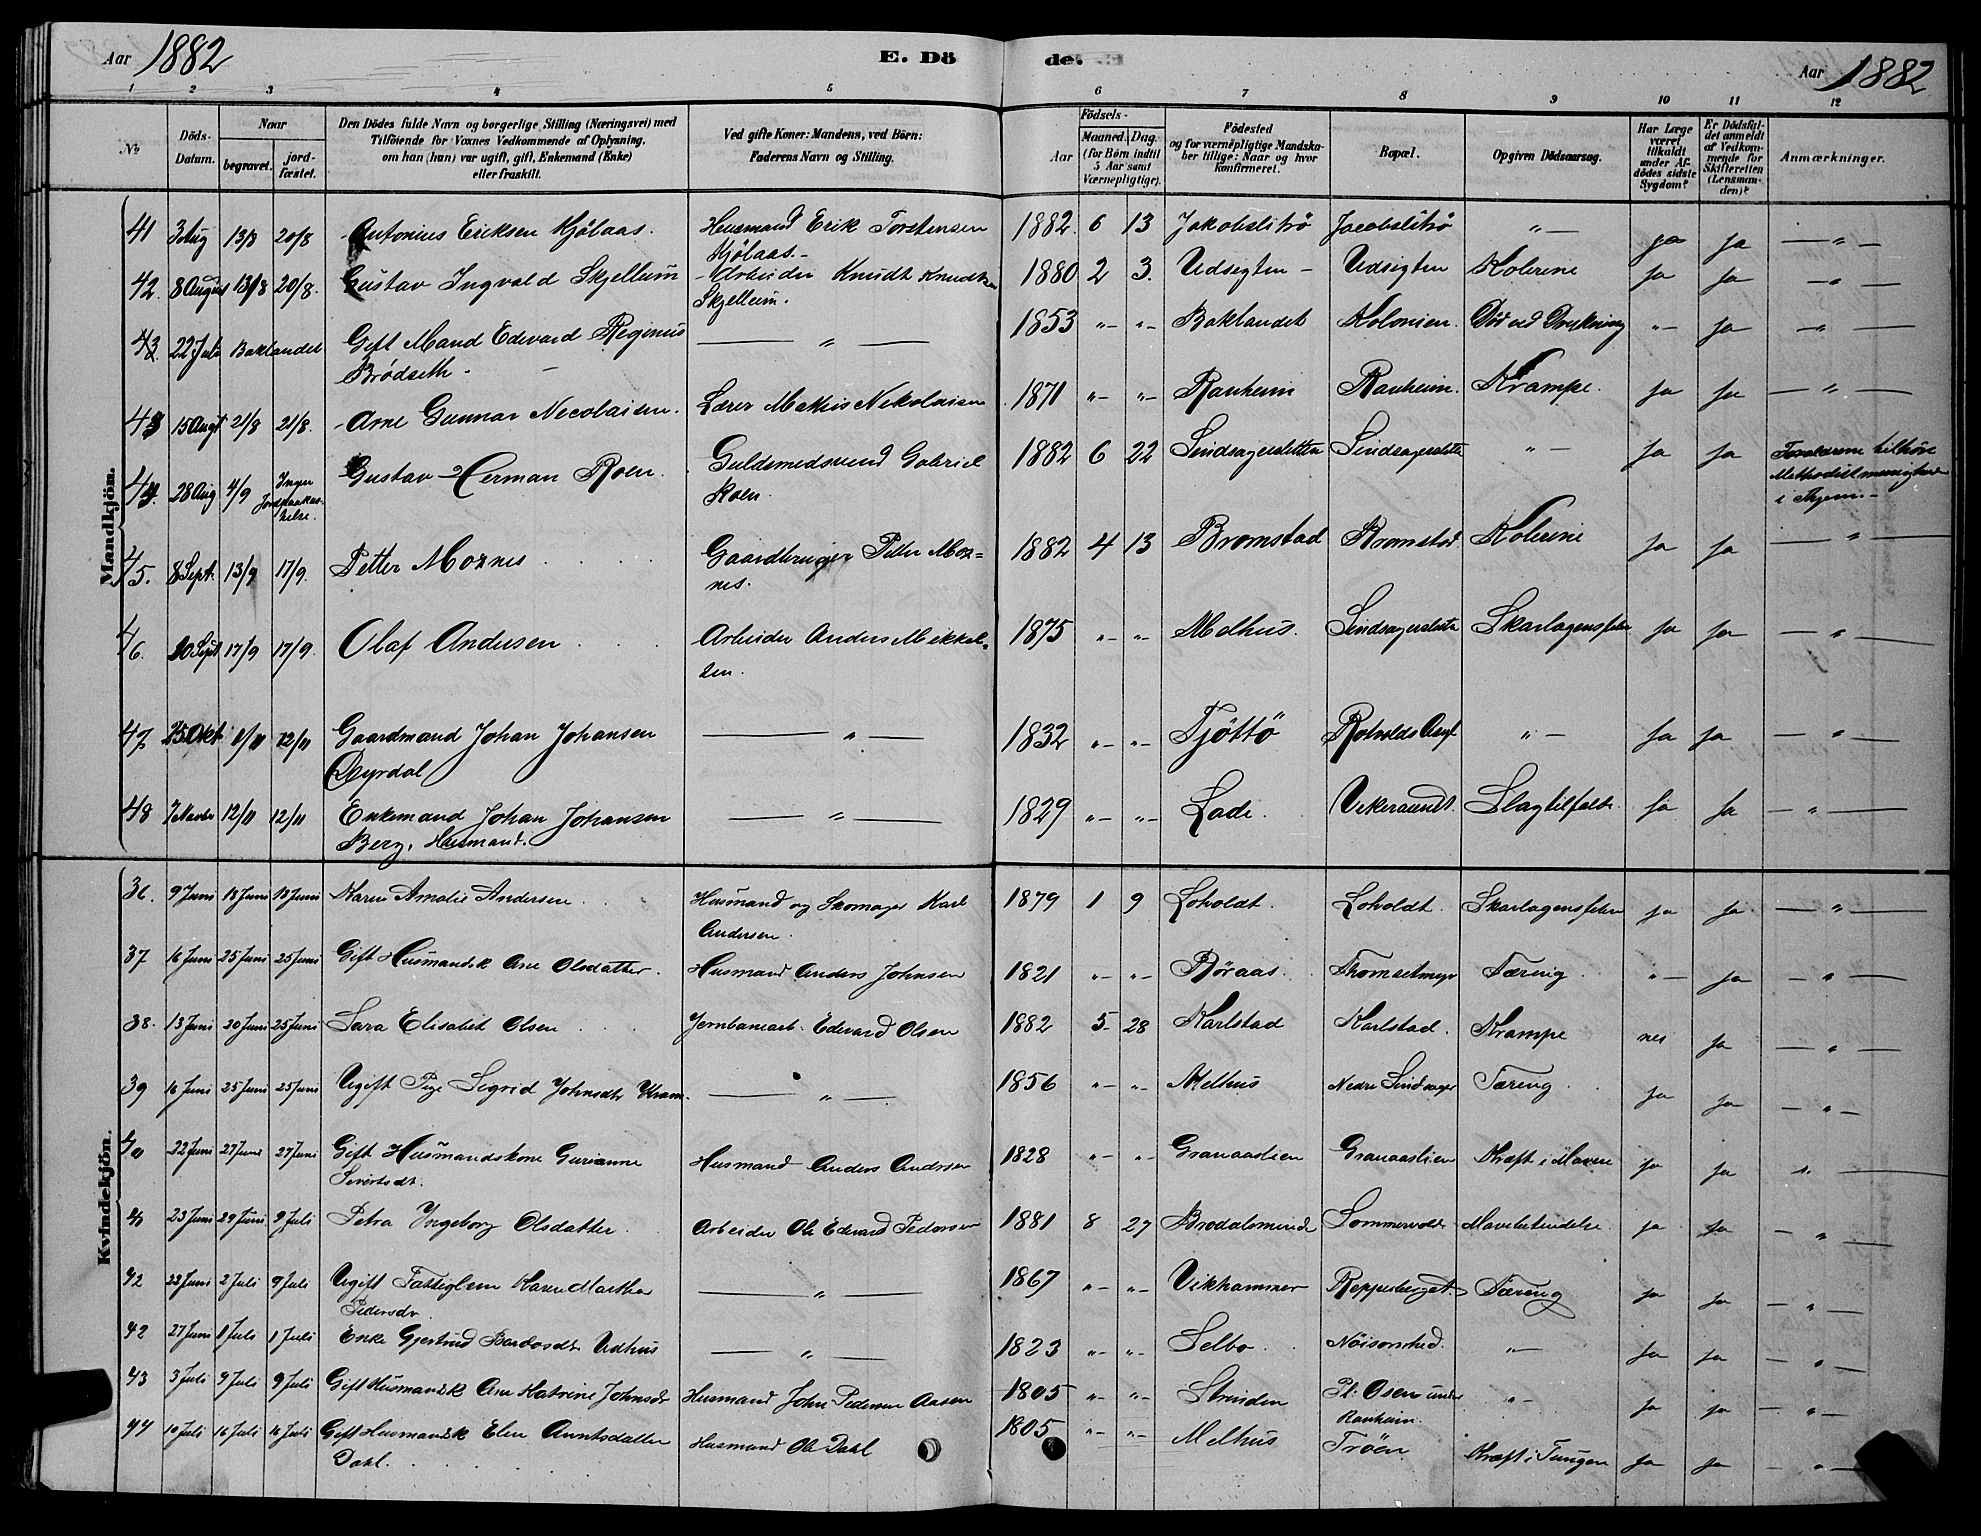 Aar 1882 E. Dö de. Aar 1882
1 2 3 4 5 6 7 8 9 10 11 12
No
Döds-Datum.
Naar
begravet.
jord-fæstet.
Den Dödes fulde Navn og borgerlige Stilling (Næringsvei) med
Tilföiende for Voxnes Vedkommende af Oplysning,
om han (hun) var ugift, gift, Enkemand (Enke)
eller fraskilt.
Ved gifte Koner: Mandens, ved Börn:
Faderens Navn og Stilling.
Födsels-
Aar
Maaned. Dag.
(for Börn indtil
5 Aar samt
Værnepligtige).
Födested
og for værnepligtige Mandska-
ber tillige: Naar og hvor
konfirmeret.
Bopæl.
Opgiven Dödsaarsag.
Har Læge
været
tilkaldt
under Af-
dödes sidste
Sygdom?
Er Dödsfal-
det anmeldt
af Vedkom-
mende for
Skifteretten
(Lensman-
den)?
Anmærkninger.
Mandkjön.
41 3 Aug 13/8 20/8 Antonius Eriksen Hjølaas. Husmand Erik Torstensen 1882. 6 13 Jakobslitrø Jacobslitrø "— ja ja — " —
Hjølaas.-
42. 8 August 13/8 20/8. Gustav Ingvald Skjellum Arbeider Knudt Knudtsen 1880 2 3. Udsigten – Udsigten Kolerine Ja Ja — " —
Skjellum.
43. 22 Juli Baklandet Gift Mand Edevard Reginius — " — 1853 "- "- Baklandet Kolonien. Død ved Drukning "- Ja — " —
Brødseth -
43 15 Augt 21/8 21/8. Arne Gunnar Necolaisen. Lærer Mathis Nikolaisen 1871 "- "- Ranheim Ranheim. Krampe. Ja Ja — " —
44. 28 Aug 4/9 Ingen Jordpaakastelse. Gustav Herman Roen. Guldsmedsvend Gabriel 1882 6 22 "- Ja Ja Forældrene tilhøre
Roen. Methodistmenigheden
i Thjem.-
45. 8 Sept. 13/9 17/9. Petter Moxnes Gaardbruger Petter Mox= 1882 4 13 Bromstad Bromstad Kolerine Ja Ja — " —
nes.
46. 10 Sept 17/9 17/9. Olaf Andersen Arbeider Anders Mikkel= 1875 "- "- Melhus. Skarlagensfeber Ja Ja — " —
sen.
47. 25 Okt 12/11 Gaardmand Johan Johansen — " — 1832 "- "- Tjøttø "- Ja Ja — " —
Dyrdal
48 7 Novbr 12/11 12/11 Enkemand Johan Johansen — " — 1829 "- "- Lade. Slagtilfælde Ja Ja — " —
Berg, Husmand.
Kvindekjön.
36. 9 Juni 18 Juni 18 Juni Karen Amalie Andersen Husmand og Skomager Karl 1879 1 9 Loholdt. Loholdt. Skarlagensfeber ja ja — " —
Andersen.
37 16 Juni 25 Juni 25 Juni Gift Husmandsk Ane Olsdatter. Husmand Anders Johnsen 1821 "- "- Røraas. Tæring "- Ja — " —
38. 13 Juni 20 Juni 25 Juni Sara Elisabet Olsen Jernbanearb. Edevard Olsen 1882 5- 28 Karlstad Karlstad. Krampe nei ja — " —
39 16 Juni 25 Juni 25 Juni Ugift Pige Sigrid Johnsdtr Kram. — " — 1856 "- "- Melhus Nedre Sindsager Tæring ja ja — " —
40 22 Juni 27 Juni 27 Juni Gift Husmandskone Gurianne Husmand Anders Andersen 1828 "- "- Granaaslien Granaaslien Kræft i Maven ja ja "
Sivertsdt.
41 23 Juni 29 Juni 9 Juli Petra Ingeborg Olsdatter. Arbeider Ole Edevard Pedersen 1881 8 27 Brodalsminde Sommervold Mavebetændelse ja ja — " —
42 22 Juni 2 Juli 9 Juli Ugift Fattiglem Karen Martha — " — 1867 "- "- Vikhammer Reppesberget Tæring ja ja — " —
Pedersdr
42 27 Juni 1 Juli 1 Juli Enke Gjertrud Bardosdt. Udhus — " — 1823 "- "- Selbo. Nöisomhed. "- Ja ja — " —
43 3 Juli 9 Juli 9 Juli Gift Husmandsk Ane Katrine Johnsdr Husmand John Pedersen Aasen 1805 "- "- Strinden Pl. Osen under "- ja ja — " —
Ranheim.
44 10 Juli 16 Juli 16 Juli Gift Husmandsk Elen Arntsdatter Husmand Ole Dahl 1805 "- "- Melhus Trøen Kræft i Tungen Ja ja — "
Dahl.